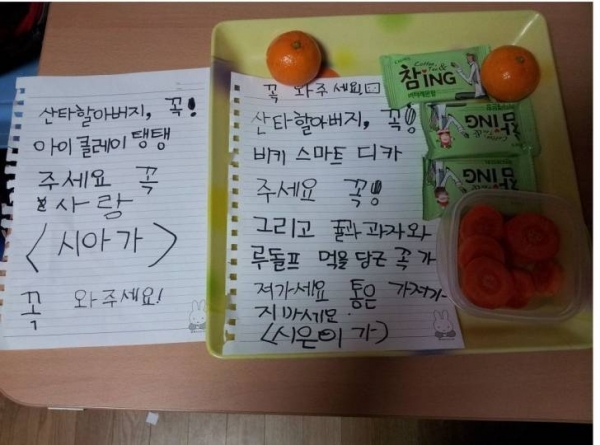 산타할아버지, 꼭!
아이클레이 탱탱
주세요 꼭
사랑
<시아가>
꼭 와주세요!
꼭 와주세요!
산타할아버지, 꼭!
비키 스마트 디카
주세요 꼭!
그리고 귤과 과자와
루돌프 먹을 당근 꼭 가
져가세요 통은 가져가
지 마세요.
<시은이가>
참ING
참ING